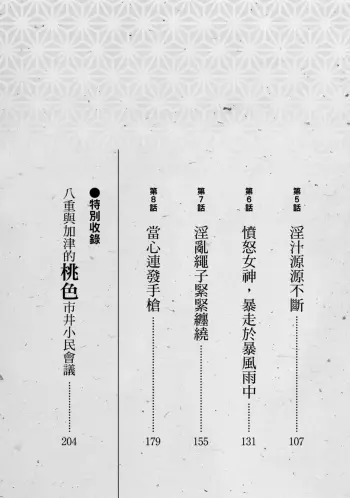 第5話 淫汁源源不斷 107
第6話 憤怒女神，暴走於暴風雨中 131
第7話 淫亂繩子緊緊纏繞 155
第8話 當心連發手槍 179
●特別收錄
八重與加津的桃色市井小民會議 204